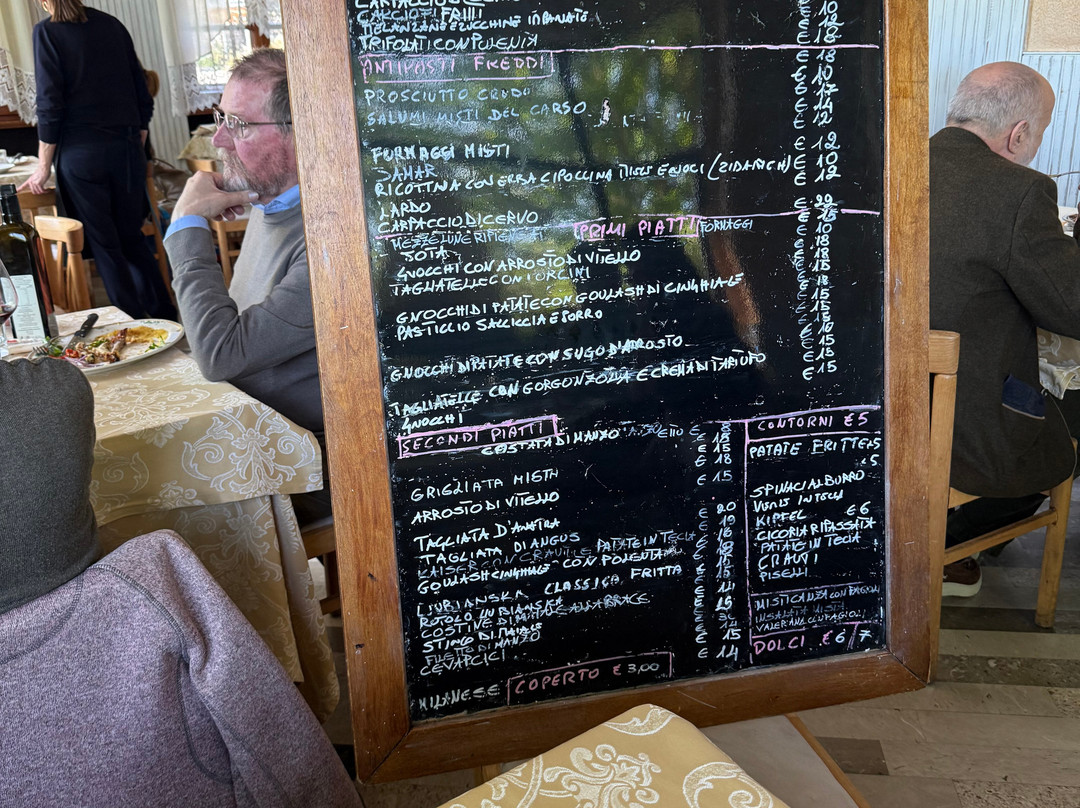 CARCIOFI FRITTI
MELANZANE E ZUCCHINE IMPANATE
TRIFOLATI CON POLENTA
€ 10
€ 12
€ 18
ANTIPASTI FREDDI
€ 18
PROSCIUTTO CRUDO
€ 10
SALUMI MISTI DEL CARSO
€ 17
€ 14
€ 12
FORMAGGI MISTI
€ 12
SAHAR
€ 10
RICOTTINA CON ERBA CIPOLLINA E NOCI (ZIDARICH)
€ 12
LARDO
CARPACCIO DI CERVO
PRIMI PIATTI
FORMAGGI
MEZZELUNE RIPIENE
SOTA
€ 10
GNOCCHI CON ARROSTO DI VITELLO
€ 18
TAGLIATELLE CON PORCINI
€ 18
€ 15
GNOCCHI DI PATATE CON GOULASH DI CINGHIALE
PASTICCIO SALCICCIA E PORRO
€ 15
€ 15
GNOCCHI DI PATATE CON SUGO D'ARROSTO
€ 15
TAGLIATELLE CON GORGONZOLA E CREMA DI TARTUFO
€ 15
GNOCCHI
€ 15
SECONDI PIATTI
COSTATA DI MANZO
€ 15
€ 18
GRIGLIATA MISTA
€ 15
ARROSTO DI VITELLO
TAGLIATA D'ANATRA
€ 20
TAGLIATA DI ANGUS
€ 19
KAISER CON CRAUTI E PATATE IN TECIA
€ 16
GOULASH CINGHIALE CON POLENTA
LJUBIANSKA CLASSICA FRITTA
ROTOLO LUBIANSKA
COSTINE DI MAIALE ALLA BRACE
STINCO DI MAIALE
FILETTO DI MANZO
€ 15
CEVAPCICI
€ 14
MILANESE
COPERTO € 3,00
CONTORNI € 5
PATATE FRITTE €5
SPINACI AL BURRO
KIPFEL € 6
CICORIA RIPASSATA
PATATE IN TECIA
CRAUTI
PISELLI
MISTICANZA CON FAGIOLI
INSALATA MISTA
VALERIANA CON FAGIOLI
DOLCI € 6 / 7